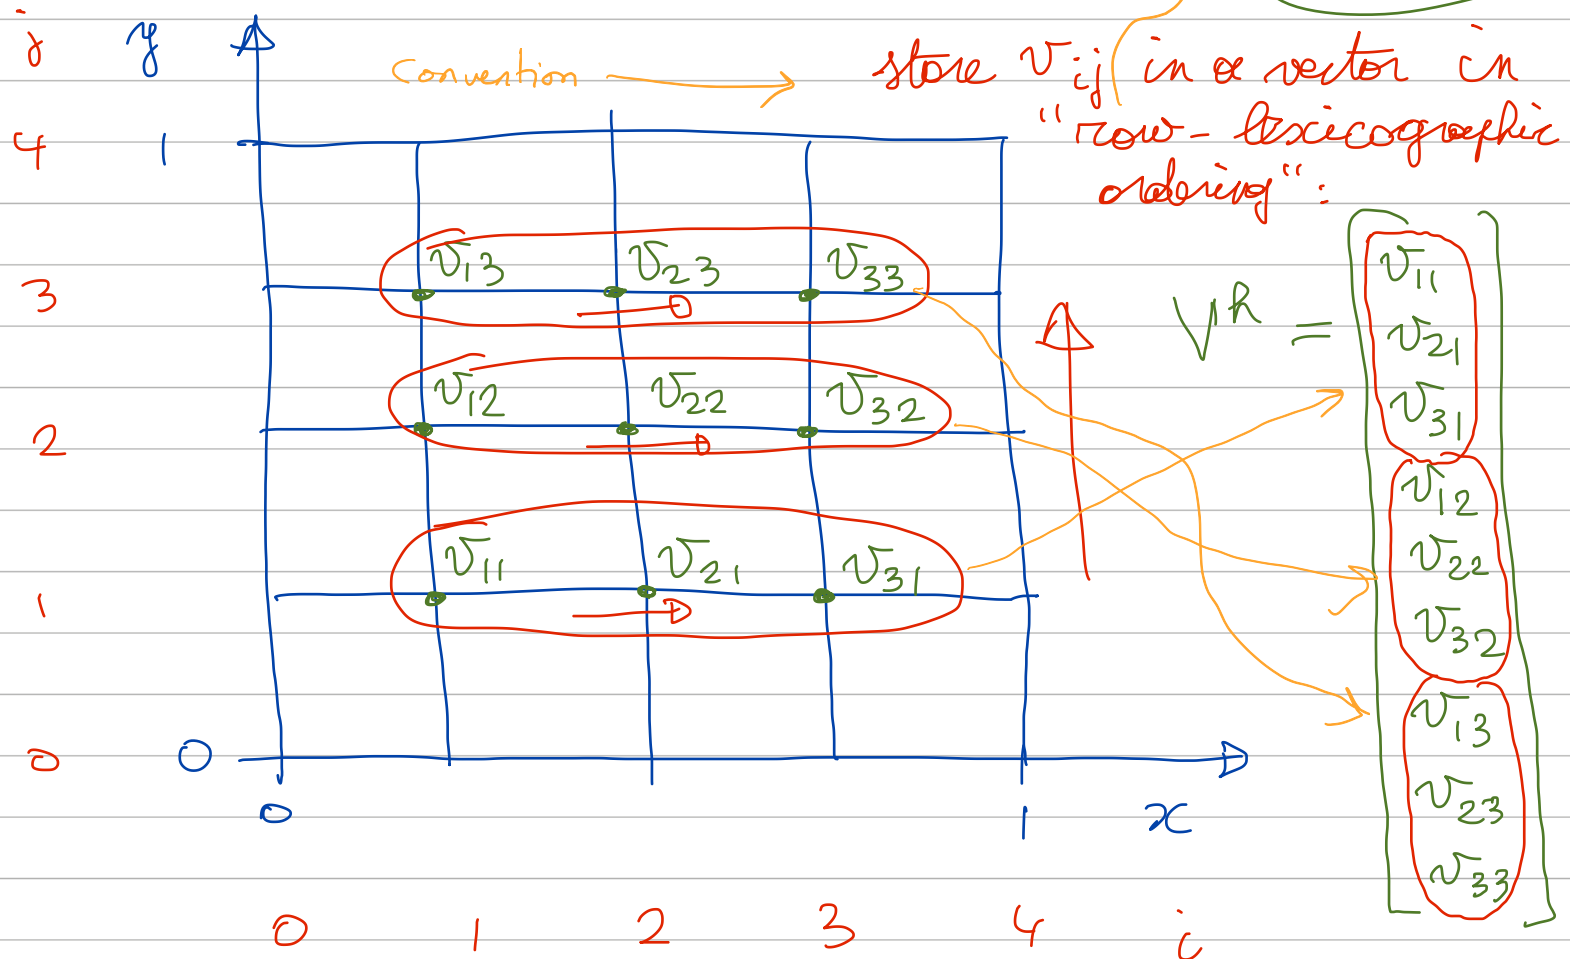 j y Convention store v_ij in a vector in
4 1 "row-lexicographic
ordering":
v_13 v_23 v_33
3
v_12 v_22 v_32
2
v_11 v_21 v_31
1
0 0
0 1 x
0 1 2 3 4 i
V^h =
v_11
v_21
v_31
v_12
v_22
v_32
v_13
v_23
v_33